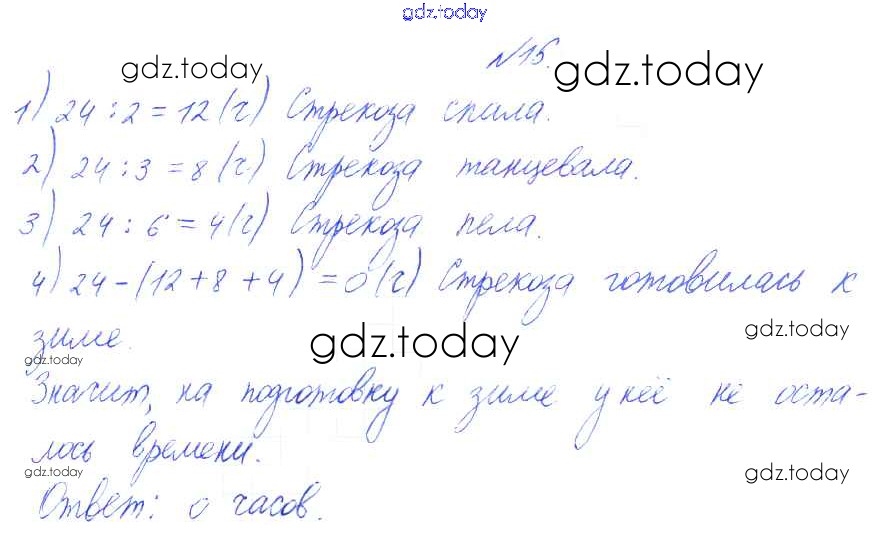 gdz.today
№15.
gdz.today gdz.today
1) 24 : 2 = 12 (ч) Стрекоза спала.
2) 24 : 3 = 8 (ч) Стрекоза танцевала.
3) 24 : 6 = 4 (ч) Стрекоза пела.
4) 24 - (12 + 8 + 4) = 0 (ч) Стрекоза готовилась к
gdz.today
зиме. gdz.today
gdz.today
Значит, на подготовку к зиме у неё не оста-
лось времени.
gdz.today gdz.today
Ответ: 0 часов.